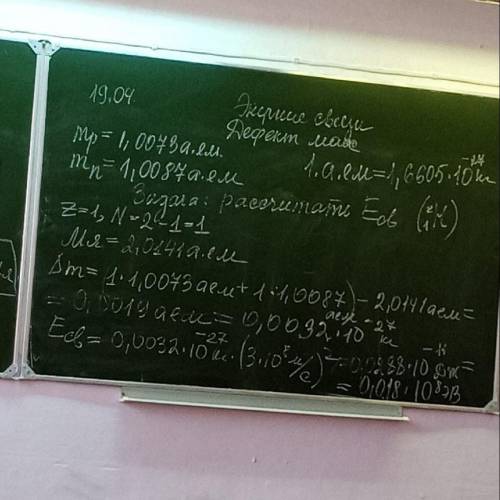 19.04.
Энергия связи
Дефект масс
mp = 1,0073 а.ем.
1.а.ем = 1,6605·10⁻²⁷ кг
mn = 1,0087 а.ем
Задача: рассчитать Eсв (²₁H)
Z=1, N=2-1=1
Mя = 2,0141 а.ем
Δm = (1·1,0073 аем + 1·1,0087) - 2,0141 аем =
= 0,0019 аем = 0,0032·10⁻²⁷
Eсв = 0,0032·10⁻²⁷ кг·(3·10⁸ м/с)² = 0,0288·10⁻¹¹ Дж =
= 0,018·10⁸ эВ